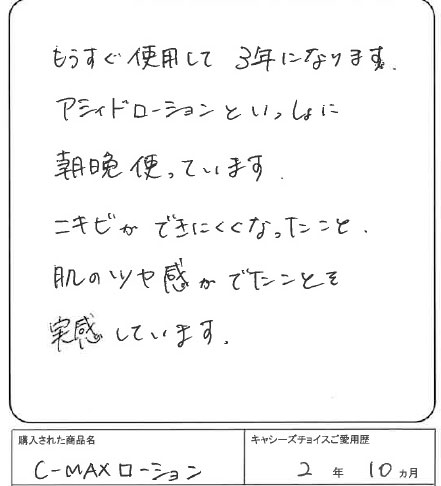 もうすぐ使用して 3年になります。
アシィドローションといっしょに
朝晩使っています.
ニキビができにくくなったこと.
肌のツヤ感がでたことを
実感しています.
購入された商品名
C-MAXローション
キャシーズチョイスご愛用歴
2 年 10 カ月